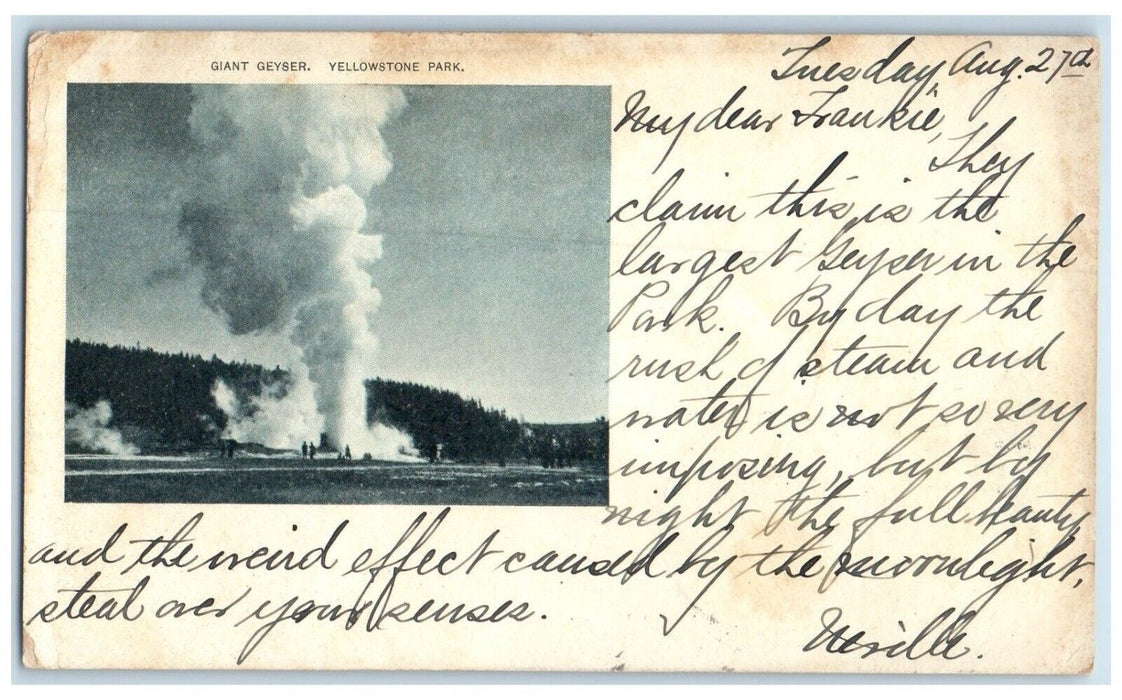 GIANT GEYSER. YELLOWSTONE PARK.
Tuesday, Aug. 27th
My dear Frankie,
They
claim this is the
largest Geyser in the
Park. By day the
rush of steam and
water is not so very
imposing, but by
night the full beauty
and the weird effect caused by the moonlight,
steal over your senses.
Neville.